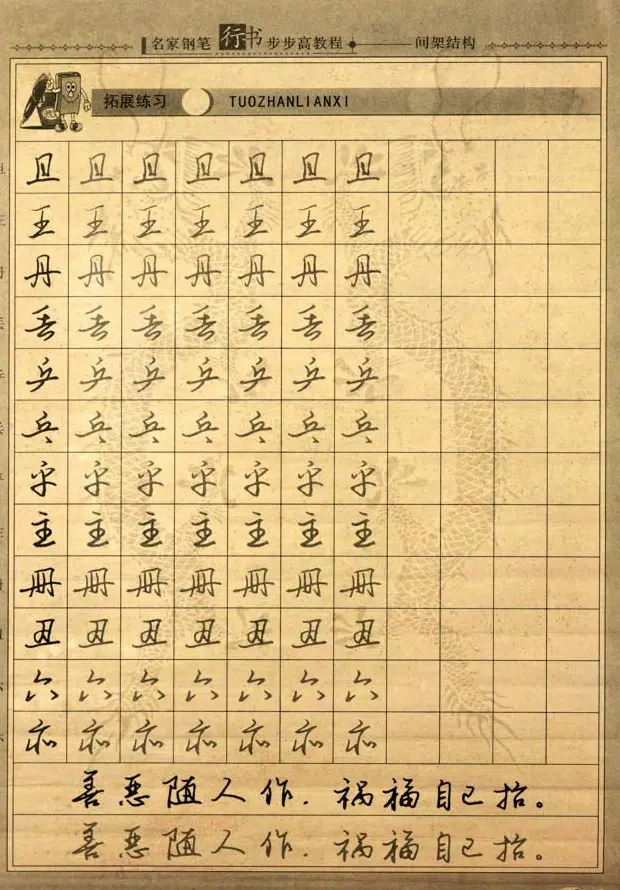 名家钢笔 行书 步步高教程 间架结构
拓展练习 TUOZHANLIANXI
且 且 且 且 且 且 且
王 王 王 王 王 王 王
丹 丹 丹 丹 丹 丹 丹
丢 丢 丢 丢 丢 丢 丢
乒 乒 乒 乒 乒 乒 乒
兵 兵 兵 兵 兵 兵 兵
乎 乎 乎 乎 乎 乎 乎
主 主 主 主 主 主 主
册 册 册 册 册 册 册
丑 丑 丑 丑 丑 丑 丑
六 六 六 六 六 六 六
亦 亦 亦 亦 亦 亦 亦
善恶随人作，祸福自己招。
善恶随人作，祸福自己招。